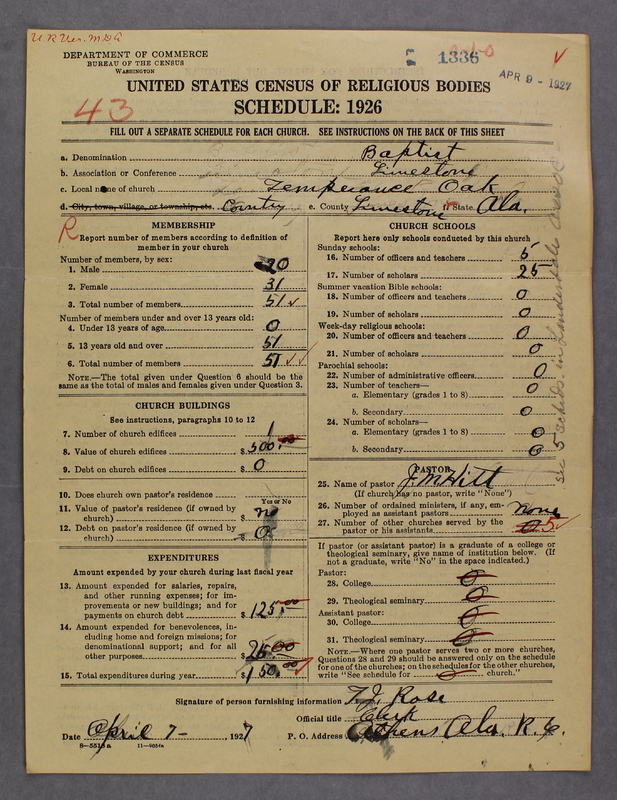 DEPARTMENT OF COMMERCE
BUREAU OF THE CENSUS
WASHINGTON
1336
APR 9 - 1927
UNITED STATES CENSUS OF RELIGIOUS BODIES
43
SCHEDULE: 1926
FILL OUT A SEPARATE SCHEDULE FOR EACH CHURCH. SEE INSTRUCTIONS ON THE BACK OF THIS SHEET
a. Denomination Baptist
b. Association or Conference Limestone
c. Local name of church Temperance Oak
d. City, town, village, or township, etc. Country e. County Limestone f. State Ala.
R
MEMBERSHIP
Report number of members according to definition of
member in your church
Number of members, by sex:
1. Male 20
2. Female 31
3. Total number of members 51
Number of members under and over 13 years old:
4. Under 13 years of age 0
5. 13 years old and over 51
6. Total number of members 51
NOTE.—The total given under Question 6 should be the
same as the total of males and females given under Question 3.
CHURCH BUILDINGS
See instructions, paragraphs 10 to 12
7. Number of church edifices 1
8. Value of church edifices $ 500.00
9. Debt on church edifices $ 0
10. Does church own pastor's residence
Yes or No
11. Value of pastor's residence (if owned by
church) $ no
12. Debt on pastor's residence (if owned by
church) $ 0
EXPENDITURES
Amount expended by your church during last fiscal year
13. Amount expended for salaries, repairs,
and other running expenses; for im-
provements or new buildings; and for
payments on church debt $ 125.00
14. Amount expended for benevolences, in-
cluding home and foreign missions; for
denominational support; and for all
other purposes $ 25.00
15. Total expenditures during year $ 150.00
CHURCH SCHOOLS
Report here only schools conducted by this church
Sunday schools:
16. Number of officers and teachers 5
17. Number of scholars 25
Summer vacation Bible schools:
18. Number of officers and teachers 0
19. Number of scholars 0
Week-day religious schools:
20. Number of officers and teachers 0
21. Number of scholars 0
Parochial schools:
22. Number of administrative officers 0
23. Number of teachers—
a. Elementary (grades 1 to 8) 0
b. Secondary 0
24. Number of scholars—
a. Elementary (grades 1 to 8) 0
b. Secondary 0
PASTOR
25. Name of pastor J. M. Hitt
(If church has no pastor, write "None")
26. Number of ordained ministers, if any, em-
ployed as assistant pastors none
27. Number of other churches served by the
pastor or his assistants 0 5
If pastor (or assistant pastor) is a graduate of a college or
theological seminary, give name of institution below. (If
not a graduate, write "No" in the space indicated.)
Pastor:
28. College 0
29. Theological seminary 0
Assistant pastor:
30. College 0
31. Theological seminary 0
NOTE.—Where one pastor serves two or more churches,
Questions 28 and 29 should be answered only on the schedule
for one of the churches; on the schedules for the other churches,
write "See schedule for 0 church."
Signature of person furnishing information F. J. Rose
Official title Clerk
Date April 7- , 1927 P. O. Address Athens Ala. R. 6.
8-5515a 11-9054a